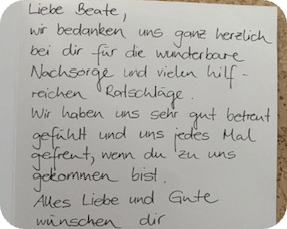 Liebe Beate,
wir bedanken uns ganz herzlich
bei dir für die wunderbare
Nachsorge und vielen hilf-
reichen Ratschläge.
Wir haben uns sehr gut betreut
gefühlt und uns jedes Mal
gefreut, wenn du zu uns
gekommen bist.
Alles Liebe und Gute
wünschen dir